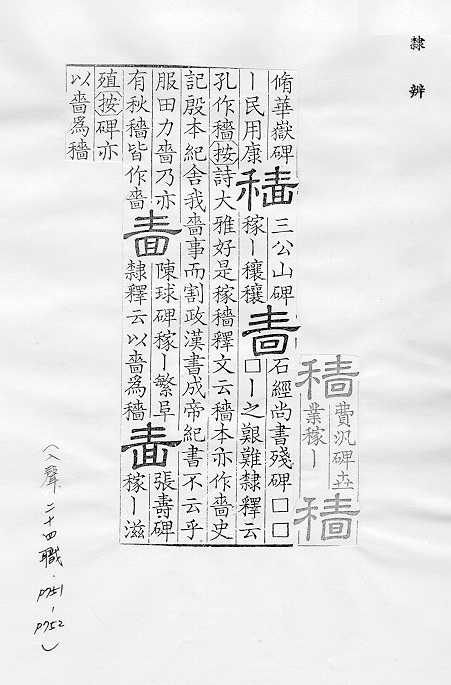 隸辨
穡
費汎碑垚
業稼ー
穡
脩華嶽碑
ー民用康
穡
三公山碑
稼ー穰穰
嗇
石經尚書殘碑□□
□ー之艱難隸釋云
孔作穡按詩大雅好是稼穡釋文云穡本亦作嗇史
記殷本紀舍我嗇事而割政漢書成帝紀書不云乎
服田力嗇乃亦
有秋穡皆作嗇
嗇
陳球碑稼ー繁阜
隸釋云以嗇為穡
嗇
張壽碑
稼ー滋
殖按碑亦
以嗇為穡
(入聲 二十四職．P751-P752)